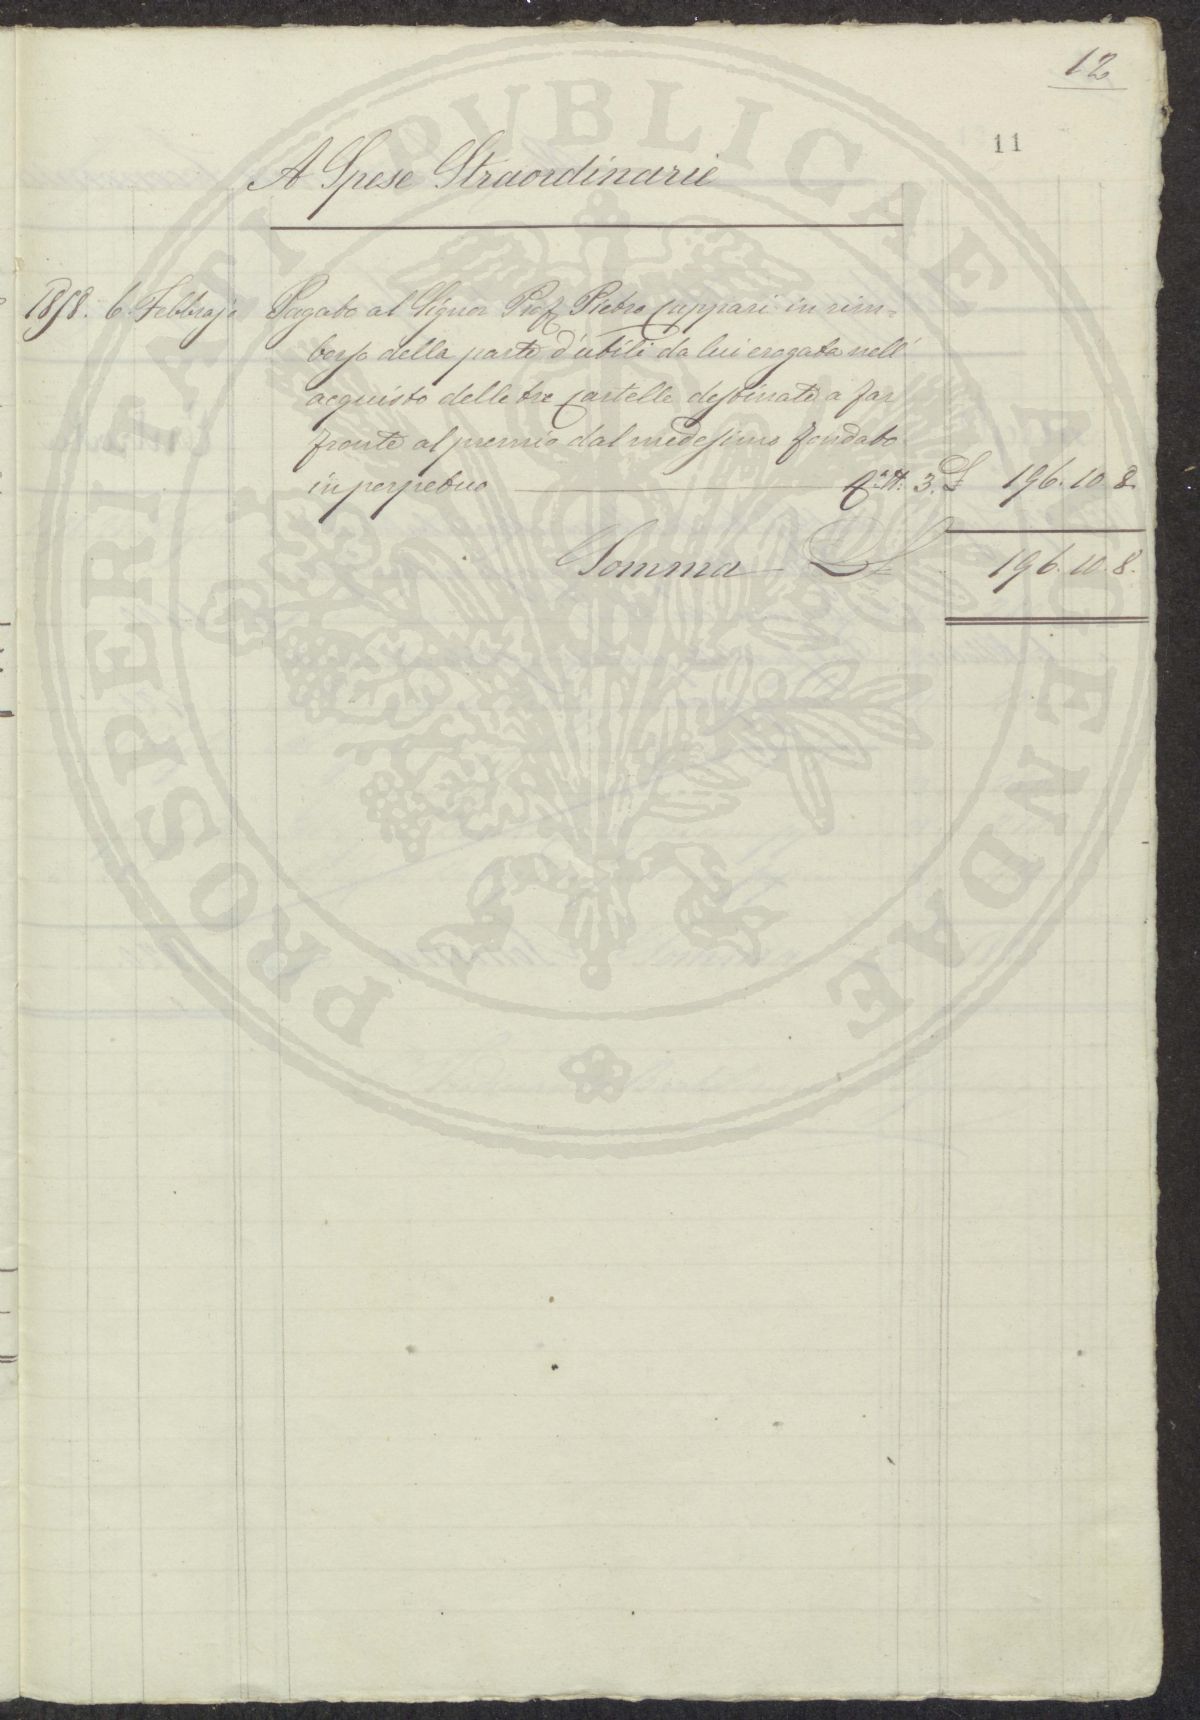 12
11
PROSPERITATI PUBLICAE AUGENDAE
A Spese Straordinarie
1858. 6. Febbrajo Pagato al Signor Prof. Pietro Cuppari in rim=
borso della parte d'utili da lui erogata nell'
acquisto delle tre cartelle destinate a far
fronte al premio dal medesimo fondato
in perpetuo 3. £ 196. 10. 8.
Somma £ 196. 10. 8.